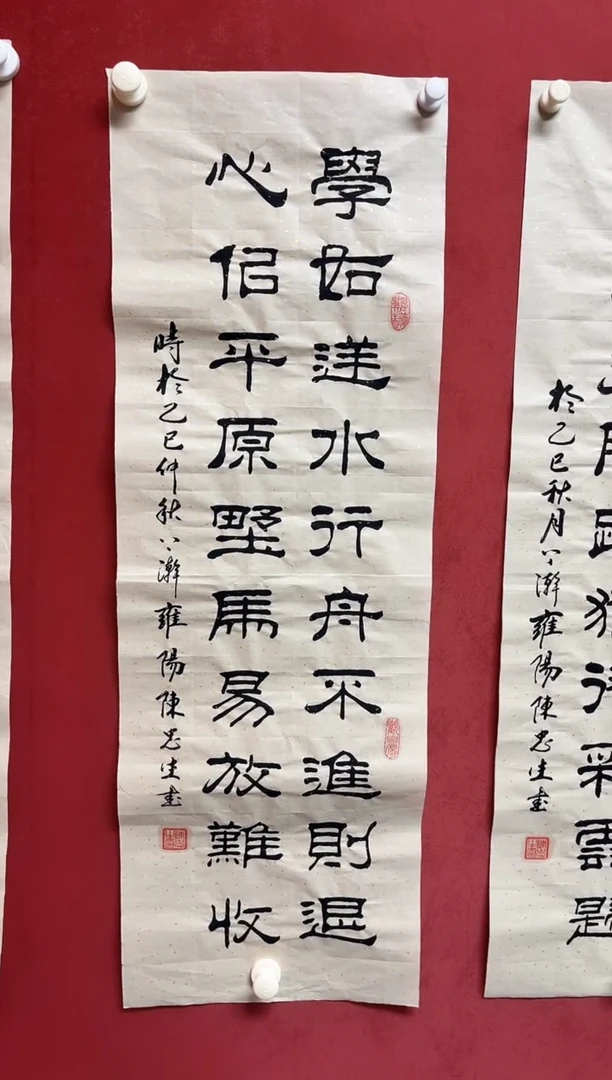 學如逆水行舟不進則退
心佀平原墅馬易放難收
時於乙巳仲秋下澣雍陽陳忠生書
於乙巳秋月下澣雍陽陳忠生書